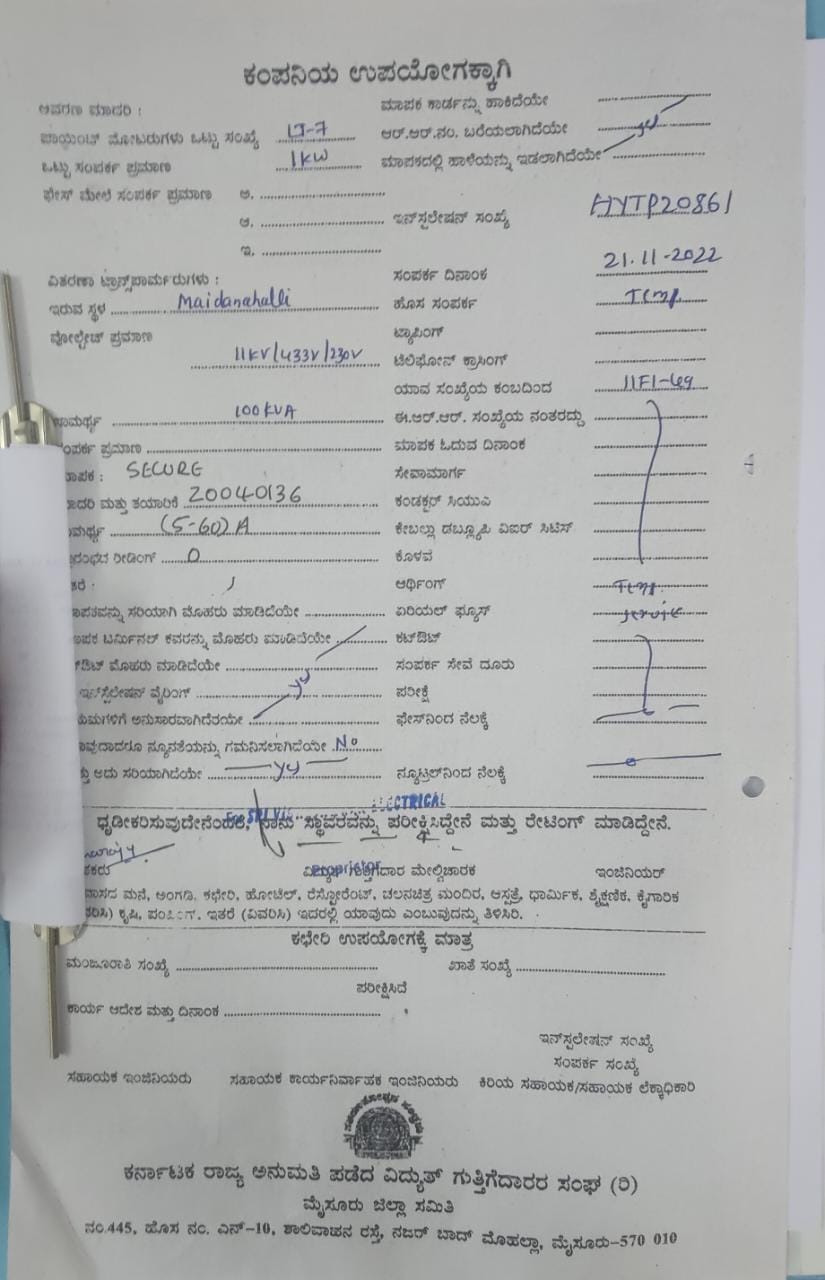 ಕಂಪನಿಯ ಉಪಯೋಗಕ್ಕಾಗಿ
ಆವರಣ ಮಾದರಿ : ಮಾಪಕ ಕಾರ್ಡನ್ನು ಹಾಕಿದೆಯೇ
ಪಾಯಿಂಟ್ ಮೋಟರುಗಳು ಒಟ್ಟು ಸಂಖ್ಯೆ LT-7 ಆರ್.ಆರ್.ನಂ. ಬರೆಯಲಾಗಿದೆಯೇ
ಒಟ್ಟು ಸಂಪರ್ಕ ಪ್ರಮಾಣ 1KW ಮಾಪಕದಲ್ಲಿ ಹಾಳೆಯನ್ನು ಇಡಲಾಗಿದೆಯೇ
ಫೇಸ್ ಮೇಲೆ ಸಂಪರ್ಕ ಪ್ರಮಾಣ ಅ.
ಆ. ಇನ್‌ಸ್ಟಲೇಷನ್ ಸಂಖ್ಯೆ HYTP20861
ಇ.
ವಿತರಣಾ ಟ್ರಾನ್ಸ್‌ಫಾರ್ಮರುಗಳು : ಸಂಪರ್ಕ ದಿನಾಂಕ 21.11-2022
ಇರುವ ಸ್ಥಳ Maidanahalli ಹೊಸ ಸಂಪರ್ಕ Temp.
ವೋಲ್ಟೇಜ್ ಪ್ರಮಾಣ ಟ್ಯಾಪಿಂಗ್
11KV/433V/230V ಟೆಲಿಫೋನ್ ಕ್ರಾಸಿಂಗ್
ಯಾವ ಸಂಖ್ಯೆಯ ಕಂಬದಿಂದ 11F1-49
ಸಾಮರ್ಥ್ಯ 100KVA ಈ.ಆರ್.ಆರ್. ಸಂಖ್ಯೆಯ ನಂತರದ್ದು
ಸಂಪರ್ಕ ಪ್ರಮಾಣ ಮಾಪಕ ಓದುವ ದಿನಾಂಕ
ಮಾಪಕ : SECURE ಸೇವಾಮಾರ್ಗ
ಮಾದರಿ ಮತ್ತು ತಯಾರಿಕೆ 20040136 ಕಂಡಕ್ಟರ್ ಸಿಯುಎ
ಸಾಮರ್ಥ್ಯ (5-60)A ಕೇಬಲ್ಲು ಡಬ್ಲ್ಯೂಪಿ ವಿಐರ್ ಸಿಟಿಸ್
ಪ್ರಾರಂಭದ ರೀಡಿಂಗ್ 0 ಕೊಳವೆ
ಅರ್ಥಿಂಗ್ Temp.
ಮಾಪಕವನ್ನು ಸರಿಯಾಗಿ ಮೊಹರು ಮಾಡಿದೆಯೇ ಏರಿಯಲ್ ಫ್ಯೂಸ್ service
ಮಾಪಕ ಟರ್ಮಿನಲ್ ಕವರನ್ನು ಮೊಹರು ಮಾಡಿದೆಯೇ ಕಟ್‌ಔಟ್
ಕಟ್‌ಔಟ್ ಮೊಹರು ಮಾಡಿದೆಯೇ ಸಂಪರ್ಕ ಸೇವೆ ದೂರು
ಇನ್‌ಸ್ಟಲೇಷನ್ ವೈರಿಂಗ್ ಪರೀಕ್ಷೆ
ನಿಯಮಗಳಿಗೆ ಅನುಸಾರವಾಗಿದೆಯೇ ಫೇಸ್‌ನಿಂದ ನೆಲಕ್ಕೆ
ಯಾವುದಾದರೂ ನ್ಯೂನತೆಯನ್ನು ಗಮನಿಸಲಾಗಿದೆಯೇ No
ಮತ್ತು ಅದು ಸರಿಯಾಗಿದೆಯೇ ನ್ಯೂಟ್ರಲ್‌ನಿಂದ ನೆಲಕ್ಕೆ
ELECTRICAL
ಧೃಡೀಕರಿಸುವುದೇನೆಂದರೆ, ನಾನು ಸ್ಥಾವರವನ್ನು ಪರೀಕ್ಷಿಸಿದ್ದೇನೆ ಮತ್ತು ರೇಟಿಂಗ್ ಮಾಡಿದ್ದೇನೆ.
Proprietor
ಗುತ್ತಿಗೆದಾರ ಮೇಲ್ವಿಚಾರಕ ಇಂಜಿನಿಯರ್
ವಾಸದ ಮನೆ, ಅಂಗಡಿ, ಕಛೇರಿ, ಹೋಟೆಲ್, ರೆಸ್ಟೋರೆಂಟ್, ಚಲನಚಿತ್ರ ಮಂದಿರ, ಆಸ್ಪತ್ರೆ, ಧಾರ್ಮಿಕ, ಶೈಕ್ಷಣಿಕ, ಕೈಗಾರಿಕ
ಕೃಷಿ, ಪಂಪಿಂಗ್, ಇತರೆ (ವಿವರಿಸಿ) ಇದರಲ್ಲಿ ಯಾವುದು ಎಂಬುವುದನ್ನು ತಿಳಿಸಿರಿ.
ಕಛೇರಿ ಉಪಯೋಗಕ್ಕೆ ಮಾತ್ರ
ಮಂಜೂರಾತಿ ಸಂಖ್ಯೆ ಖಾತೆ ಸಂಖ್ಯೆ
ಪರೀಕ್ಷಿಸಿದೆ
ಕಾರ್ಯ ಆದೇಶ ಮತ್ತು ದಿನಾಂಕ
ಇನ್‌ಸ್ಟಲೇಷನ್ ಸಂಖ್ಯೆ
ಸಂಪರ್ಕ ಸಂಖ್ಯೆ
ಸಹಾಯಕ ಇಂಜಿನಿಯರು ಸಹಾಯಕ ಕಾರ್ಯನಿರ್ವಾಹಕ ಇಂಜಿನಿಯರು ಕಿರಿಯ ಸಹಾಯಕ/ಸಹಾಯಕ ಲೆಕ್ಕಾಧಿಕಾರಿ
ಕರ್ನಾಟಕ ರಾಜ್ಯ ಅನುಮತಿ ಪಡೆದ ವಿದ್ಯುತ್ ಗುತ್ತಿಗೆದಾರರ ಸಂಘ (ರಿ)
ಮೈಸೂರು ಜಿಲ್ಲಾ ಸಮಿತಿ
ನಂ.445, ಹೊಸ ನಂ. ಎನ್-10, ಶಾಲಿವಾಹನ ರಸ್ತೆ, ನಜರ್ ಬಾದ್ ಮೊಹಲ್ಲಾ, ಮೈಸೂರು-570 010